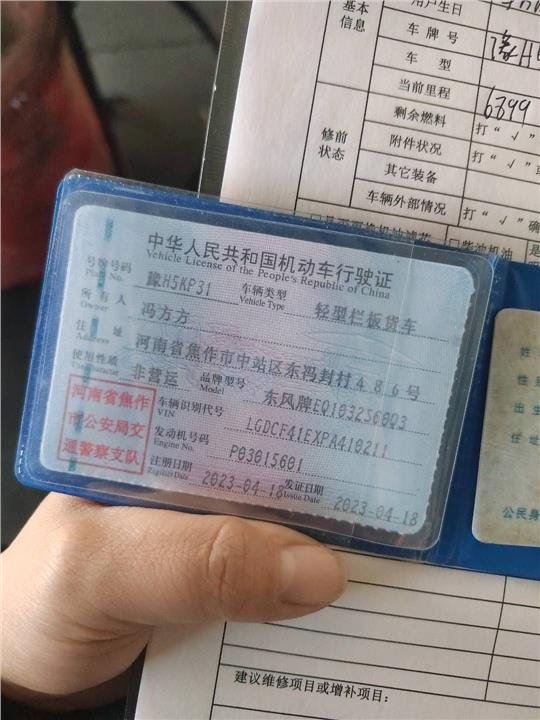 基本
信息
用户生日
车牌号
豫H
车型
当前里程
6899
修前
状态
剩余燃料
打“√”
附件状况
打“√”
其它装备
车辆外部情况
打“√”确
柴油机油
中华人民共和国机动车行驶证
Vehicle License of the People's Republic of China
号牌号码 豫H5KP31 车辆类型 轻型栏板货车
Plate No. Vehicle Type
所有人 冯方方
Owner
住址 河南省焦作市中站区东冯封村486号
Address
使用性质 非营运 品牌型号 东风牌EQ1032S60Q3
Use Character Model
河南省焦作
市公安局交
通警察支队
车辆识别代号 LGDCF41EXPA410211
VIN
发动机号码 P03015601
Engine No.
注册日期 2023-04-18 发证日期 2023-04-18
Register Date Issue Date
姓
性
出生
住址
公民身
建议维修项目或增补项目: